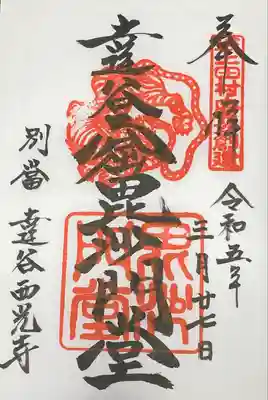 奉拝
令和五年
三月廿七日
達谷窟毘沙門堂
別當
達谷西光寺